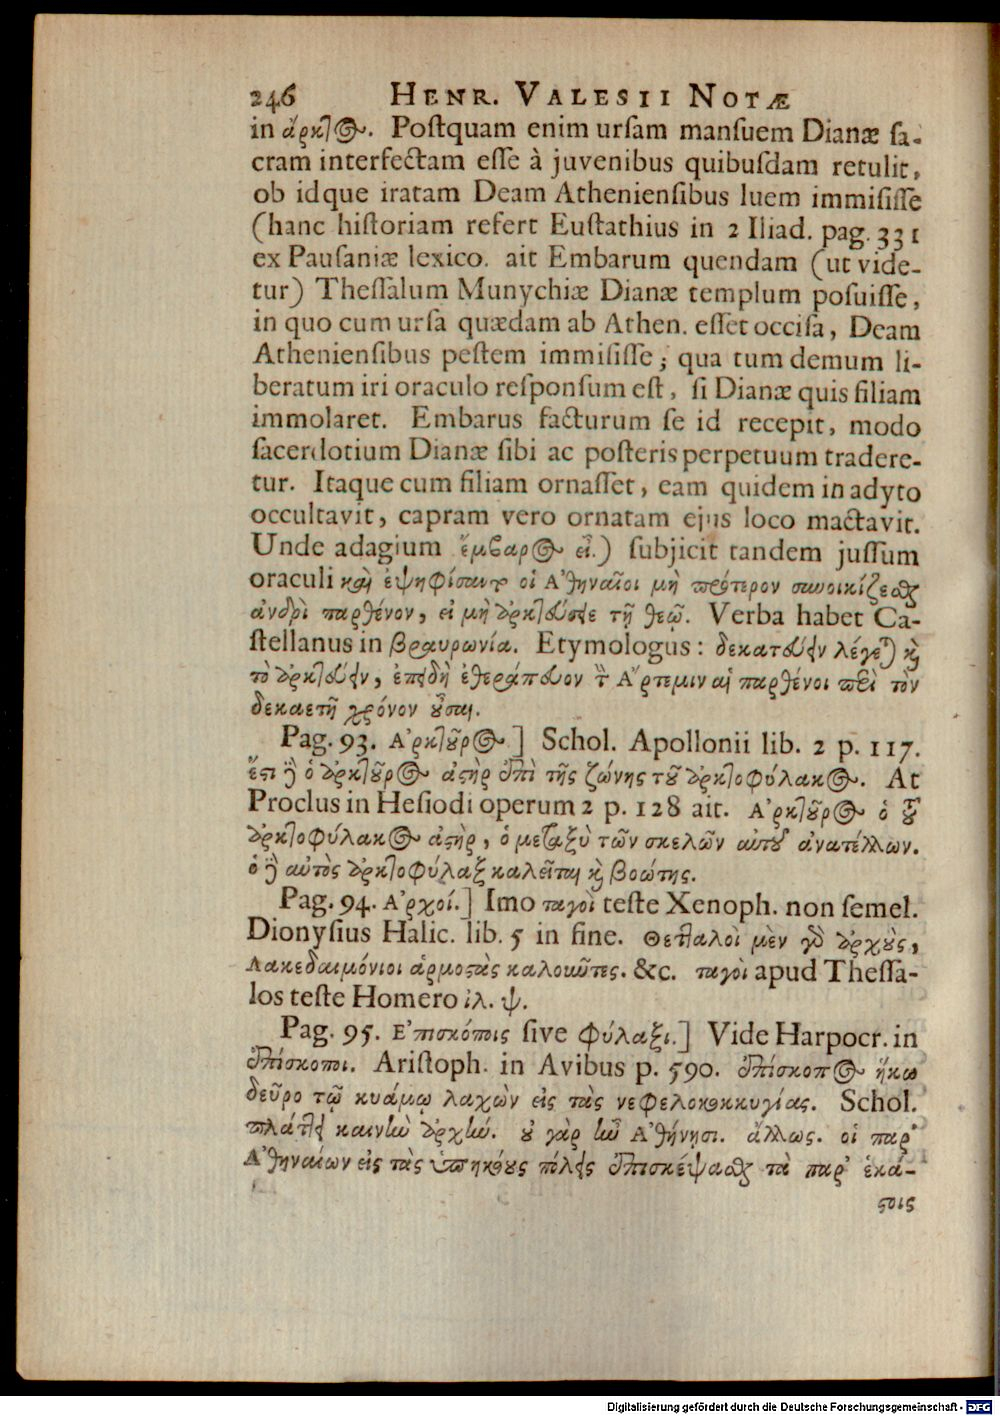 246 HENR. VALESII NOTÆ
in ἄρκτος. Poſtquam enim urſam manſuem Dianæ ſa-
cram interfectam eſſe à juvenibus quibuſdam retulit,
ob idque iratam Deam Athenienſibus luem immiſiſſe
(hanc hiſtoriam refert Euſtathius in 2 Iliad. pag. 331
ex Pauſaniæ lexico. ait Embarum quendam (ut vide-
tur) Theſſalum Munychiæ Dianæ templum poſuiſſe,
in quo cum urſa quædam ab Athen. eſſet occiſa, Deam
Athenienſibus peſtem immiſiſſe; qua tum demum li-
beratum iri oraculo reſponſum eſt, ſi Dianæ quis filiam
immolaret. Embarus facturum ſe id recepit, modo
ſacerdotium Dianæ ſibi ac poſteris perpetuum tradere-
tur. Itaque cum filiam ornaſſet, eam quidem in adyto
occultavit, capram vero ornatam ejus loco mactavit.
Unde adagium ἔμβαρος εἶ.) ſubjicit tandem juſſum
oraculi καὶ ἐψηφίσαντο οἱ Ἀθηναῖοι μὴ πρότερον συνοικίζεσθαι
ἀνδρὶ παρθένον, εἰ μὴ ἀρκτεύσειε τῇ θεῷ. Verba habet Ca-
ſtellanus in βραυρωνία. Etymologus: δεκατεύειν λέγεται καὶ
τὸ ἀρκτεύειν, ἐπειδὴ ἐθεράπευον τὴν Ἄρτεμιν αἱ παρθένοι περὶ τὸν
δεκαετῆ χρόνον οὖσαι.
Pag. 93. Ἀρκτοῦρος] Schol. Apollonii lib. 2 p. 117.
ἔστι δὲ ὁ ἀρκτοῦρος ἀστὴρ ἐπὶ τῆς ζώνης τοῦ ἀρκτοφύλακος. At
Proclus in Heſiodi operum 2 p. 128 ait. Ἀρκτοῦρος ὁ τοῦ
ἀρκτοφύλακος ἀστὴρ, ὁ μεταξὺ τῶν σκελῶν αὐτοῦ ἀνατέλλων.
ὁ δὲ αὐτὸς ἀρκτοφύλαξ καλεῖται καὶ βοώτης.
Pag. 94. Ἀρχοί.] Imo ταγοὶ teſte Xenoph. non ſemel.
Dionyſius Halic. lib. 5 in fine. Θετταλοὶ μὲν γὰρ ἀρχοὺς,
Λακεδαιμόνιοι ἁρμοστὰς καλοῦντες. &c. ταγοὶ apud Theſſa-
los teſte Homero ἰλ. ψ.
Pag. 95. Ἐπισκόποις ſive φύλαξι.] Vide Harpocr. in
ἐπίσκοποι. Ariſtoph. in Avibus p. 590. ἐπίσκοπος ἥκω
δεῦρο τῷ κυάμῳ λαχὼν εἰς τὰς νεφελοκοκκυγίας. Schol.
πλάττει καινὴν ἀρχήν. οὐ γὰρ ἦν Ἀθήνησι. ἄλλως. οἱ παρ'
Ἀθηναίων εἰς τὰς ὑπηκόους πόλεις ἐπισκέψασθαι τὰ παρ' ἑκά-
στοις
Digitalisierung gefördert durch die Deutsche Forschungsgemeinschaft - DFG